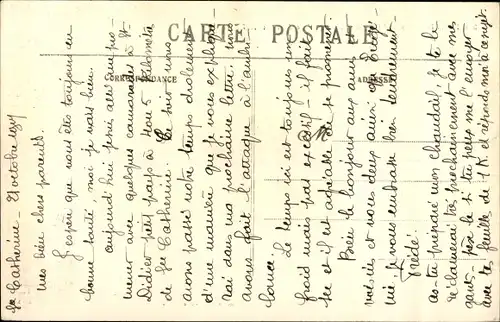 CARTE POSTALE
CORRESPONDANCE
ADRESSE
Ste Catherine - 21 octobre 1934
Mes bien chers parents.
J'espère que vous êtes toujours en
bonne santé, moi je vais bien.
aujourd'hui jeudi, allé en pro-
mener avec quelques camarades à St
Didier petit pays à 4 ou 5 kilomètres
de Ste Catherine. Ce soir nous
avons passé notre temps drolement
d'une manière que je vous explique-
rai dans ma prochaine lettre. nous
avons fait l'attaque à l'ambu-
lance.
Le temps ici est toujours un
froid mais pas excessif - il fait
sec et il est agréable de se promener.
Bien le bonjour aux amis
voisins et vous deux aussi
mes je vous embrasse bien tendrement.
Frédé.
as-tu préparé mon chandail, je te le
réclamerai très prochainement avec mes
gants - si tu peux me l'envoyer
avec la feuille de et réponds moi à ce sujet.